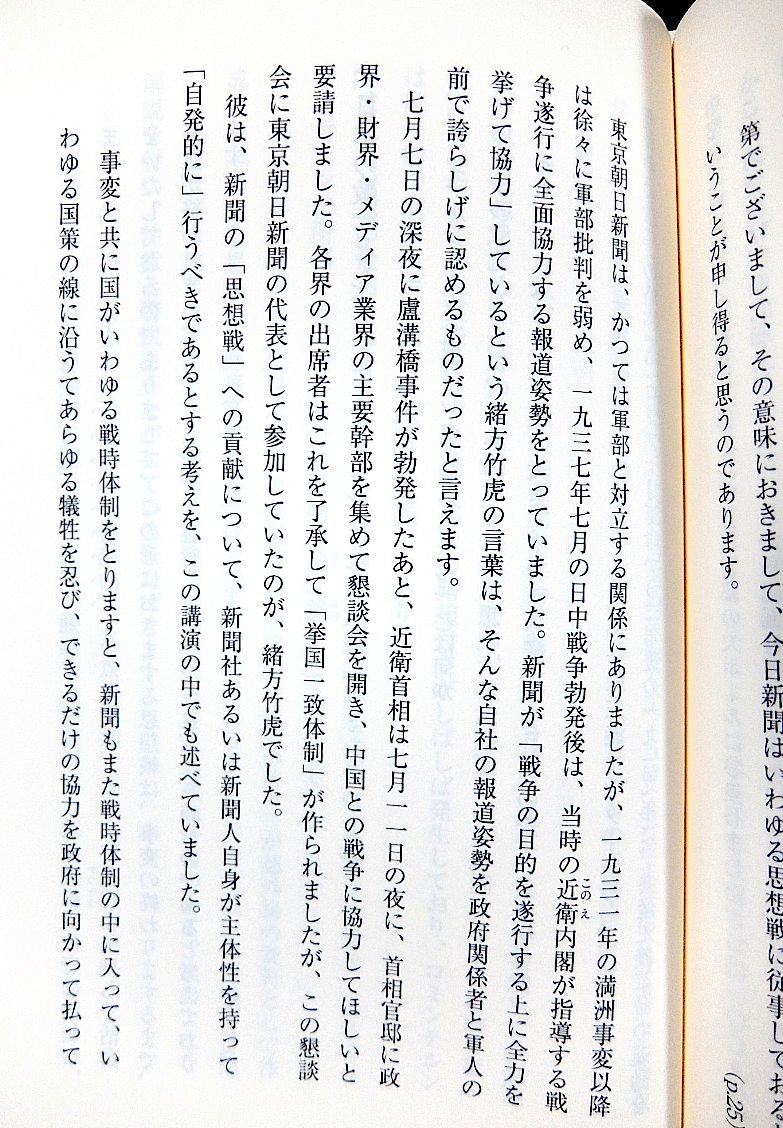 第でございまして、その意味におきまして、今日新聞はいわゆる思想戦に従事しておる
いうことが申し得ると思うのであります。
(p.25)
東京朝日新聞は、かつては軍部と対立する関係にありましたが、一九三一年の満洲事変以降
は徐々に軍部批判を弱め、一九三七年七月の日中戦争勃発後は、当時の近衛内閣が指導する戦
このえ
争遂行に全面協力する報道姿勢をとっていました。新聞が「戦争の目的を遂行する上に全力を
挙げて協力」しているという緒方竹虎の言葉は、そんな自社の報道姿勢を政府関係者と軍人の
前で誇らしげに認めるものだったと言えます。
七月七日の深夜に盧溝橋事件が勃発したあと、近衛首相は七月一一日の夜に、首相官邸に政
界・財界・メディア業界の主要幹部を集めて懇談会を開き、中国との戦争に協力してほしいと
要請しました。各界の出席者はこれを了承して「挙国一致体制」が作られましたが、この懇談
会に東京朝日新聞の代表として参加していたのが、緒方竹虎でした。
彼は、新聞の「思想戦」への貢献について、新聞社あるいは新聞人自身が主体性を持って
「自発的に」行うべきであるとする考えを、この講演の中でも述べていました。
事変と共に国がいわゆる戦時体制をとりますと、新聞もまた戦時体制の中に入って、い
わゆる国策の線に沿うてあらゆる犠牲を忍び、できるだけの協力を政府に向かって払って